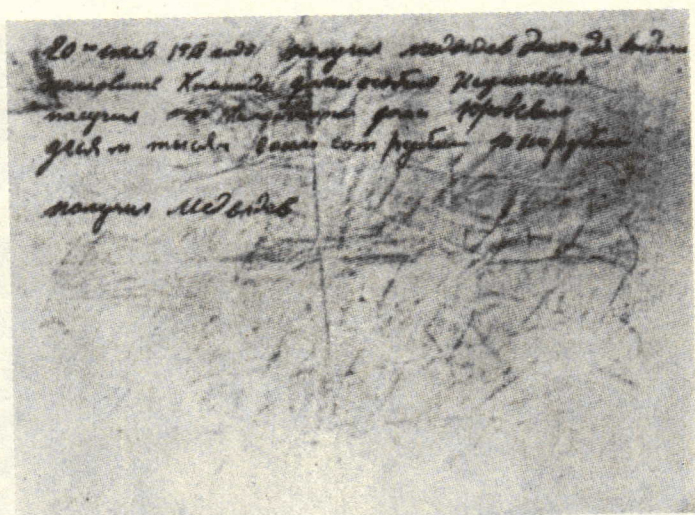 20го июля 1918 года получил медведев денег для выдачи
Команде дома особого
получил от коменданта дома Юровского
десят тысяч восем сот рублей
получил Медведев